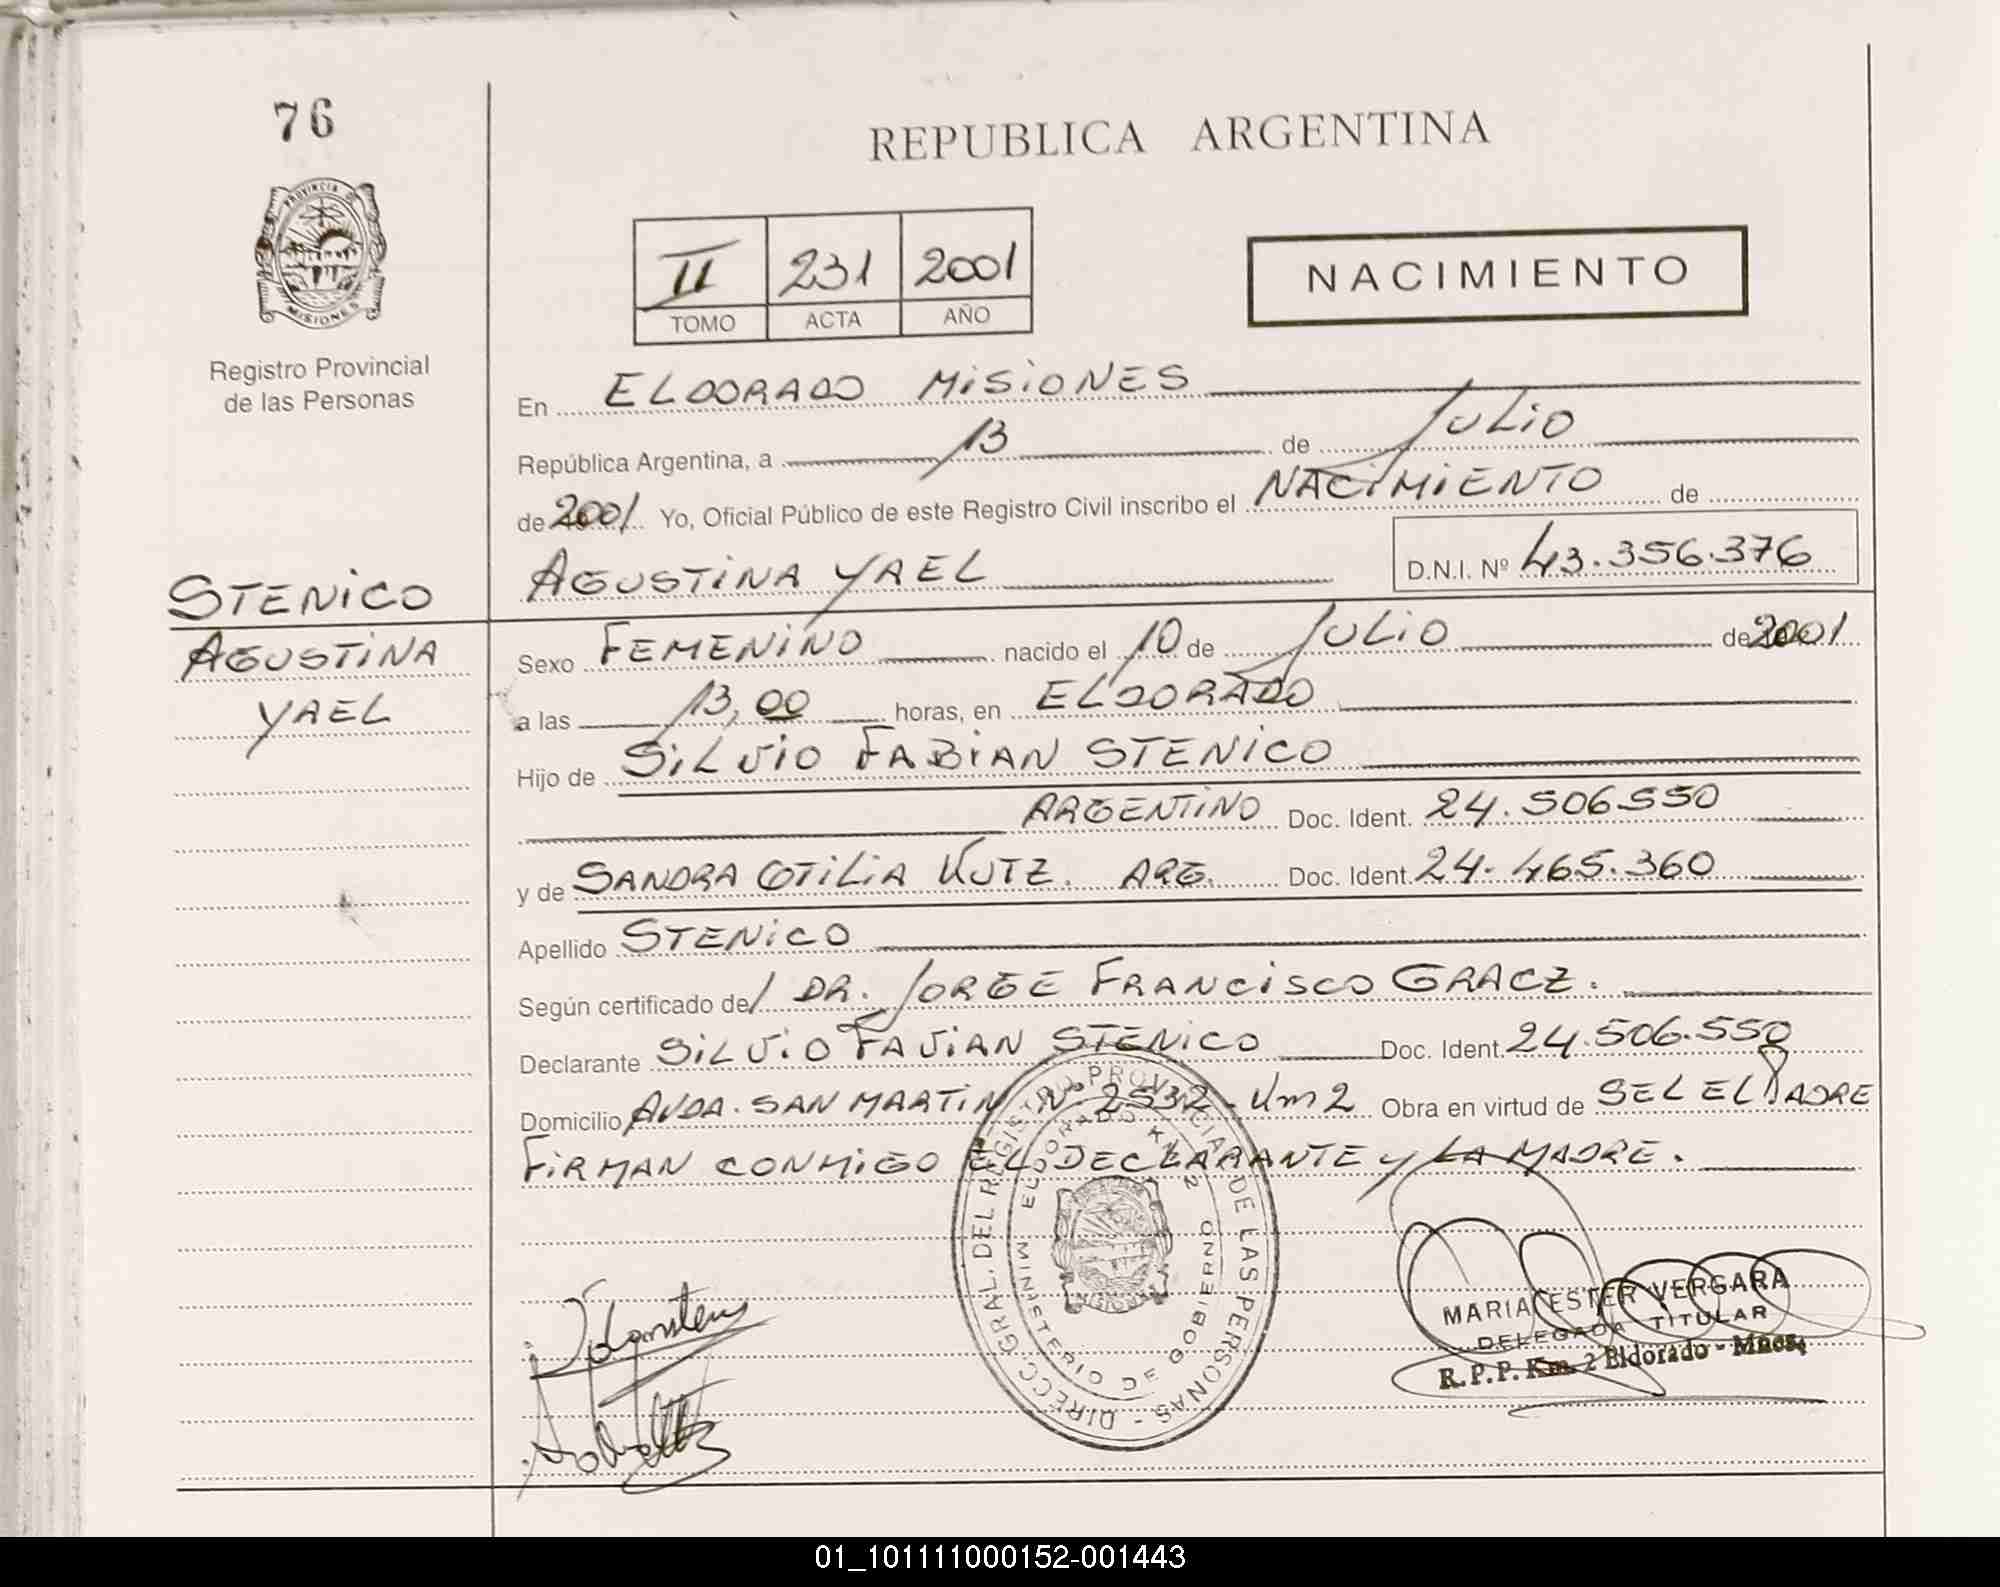 76
REPUBLICA ARGENTINA
PROVINCIA DE
MISIONES
Registro Provincial
de las Personas
II 231 2001
TOMO ACTA AÑO
NACIMIENTO
En ELDORADO MISIONES
República Argentina, a 13 de JULIO
de 2001 Yo, Oficial Público de este Registro Civil inscribo el NACIMIENTO de
AGUSTINA YAEL D.N.I. Nº 43.356.376
STENICO
AGUSTINA
YAEL
Sexo FEMENINO nacido el 10 de JULIO de 2001
a las 13,00 horas, en ELDORADO
Hijo de SILVIO FABIAN STENICO
ARGENTINO Doc. Ident. 24.506.550
y de SANDRA OTILIA KUTZ. ARG. Doc. Ident. 24.465.360
Apellido STENICO
Según certificado de/ DR. JORGE FRANCISCO GRACZ.
Declarante SILVIO FAVIAN STENICO Doc. Ident. 24.506.550
Domicilio AVDA. SAN MARTIN Nº 2532 - Km 2 Obra en virtud de SEL EL PADRE
FIRMAN CONMIGO EL DECLARANTE y LA MADRE.
DIRECC. GRAL. DEL REGISTRO PROVINCIAL DE LAS PERSONAS -
ELDORADO KM 2
MINISTERIO DE GOBIERNO
MISIONES
MARIA ESTER VERGARA
DELEGADA TITULAR
R.P.P. Km. 2 Eldorado - Mnes.
01_101111000152-001443